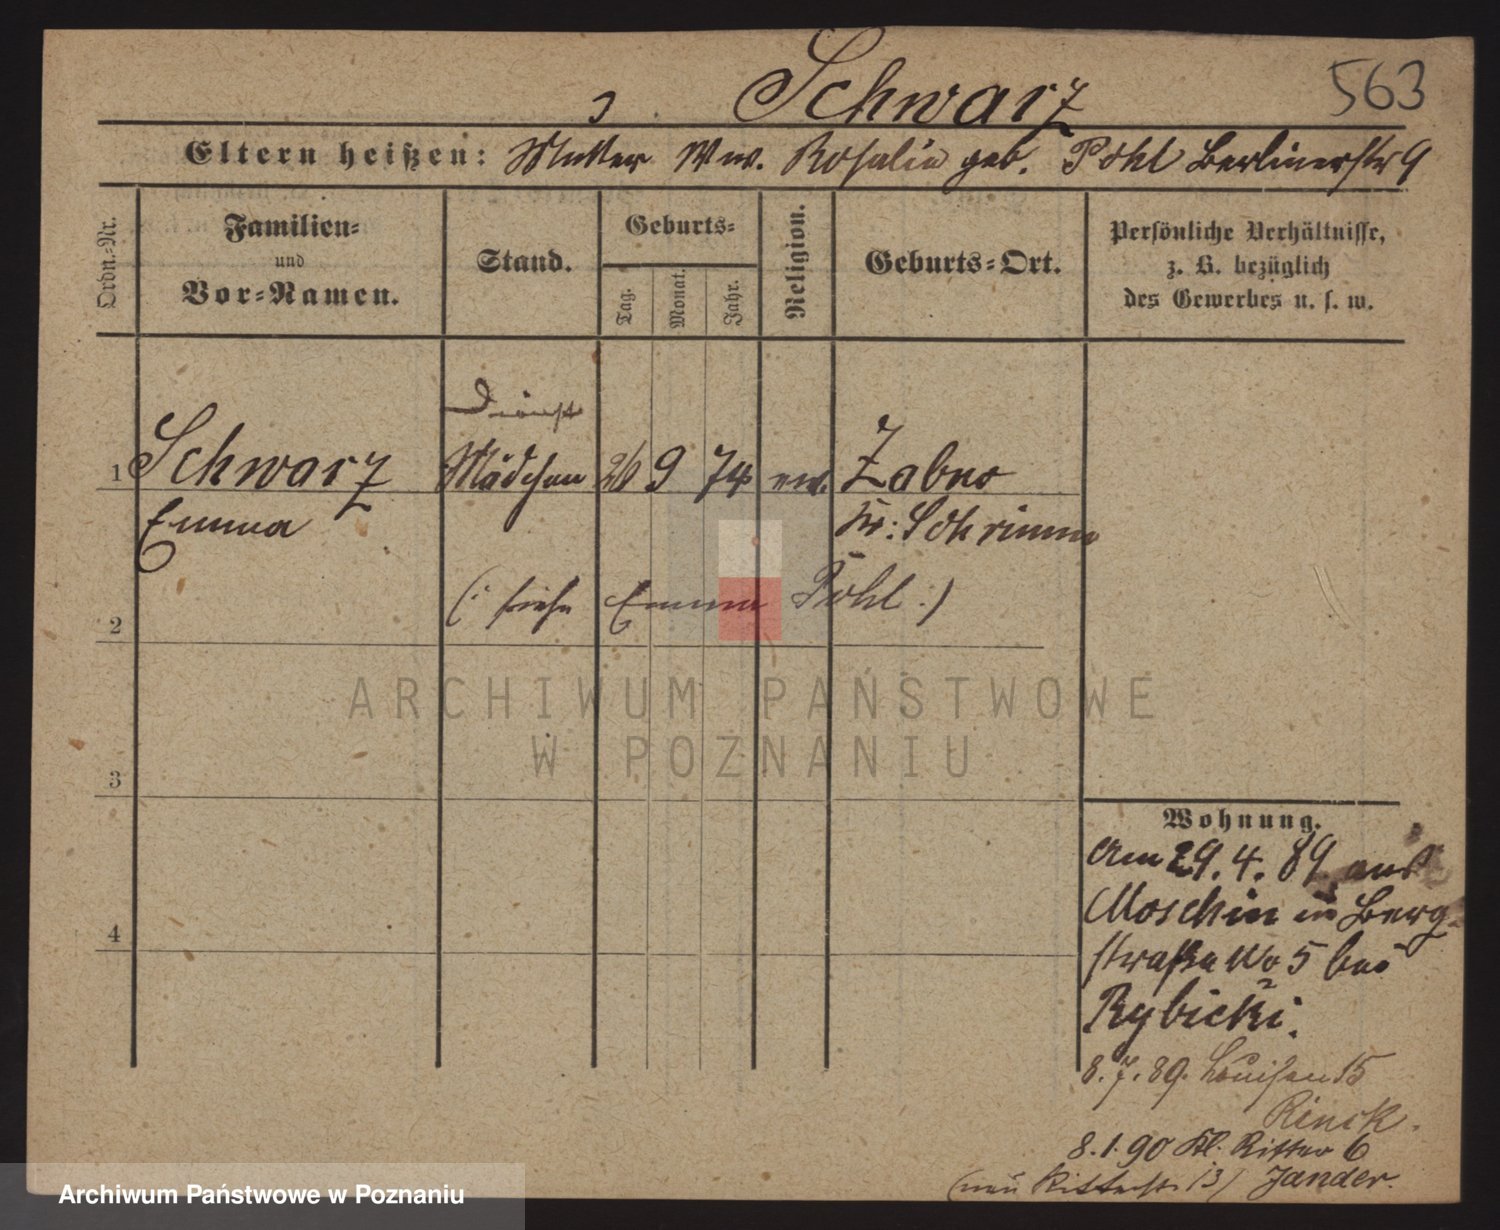 Schwarz 563
Eltern heißen: Mutter Ww. Rosalie geb. Pohl Berlinerstr 9
Ordn.-Nr.
Familien-
und
Vor-Namen.
Stand.
Geburts-
Tag.
Monat.
Jahr.
Religion.
Geburts-Ort.
Persönliche Verhältnisse,
z. B. bezüglich
des Gewerbes u. s. w.
Dienst
1 Schwarz Mädchen 26 9 74 ev. Zabno
Emma Kr: Schrimm
(: siehe Emma Pohl :)
2
ARCHIWUM PAŃSTWOWE
W POZNANIU
3
4
Wohnung.
Am 29.4.89 aus
Moschin in Berg-
straße No 5 bei
Rybicki.
8.7.89. Louisen 15
Rinck.
8.1.90 Kl. Ritter 6
(neu Ritterstr 13) Jander.
Archiwum Państwowe w Poznaniu